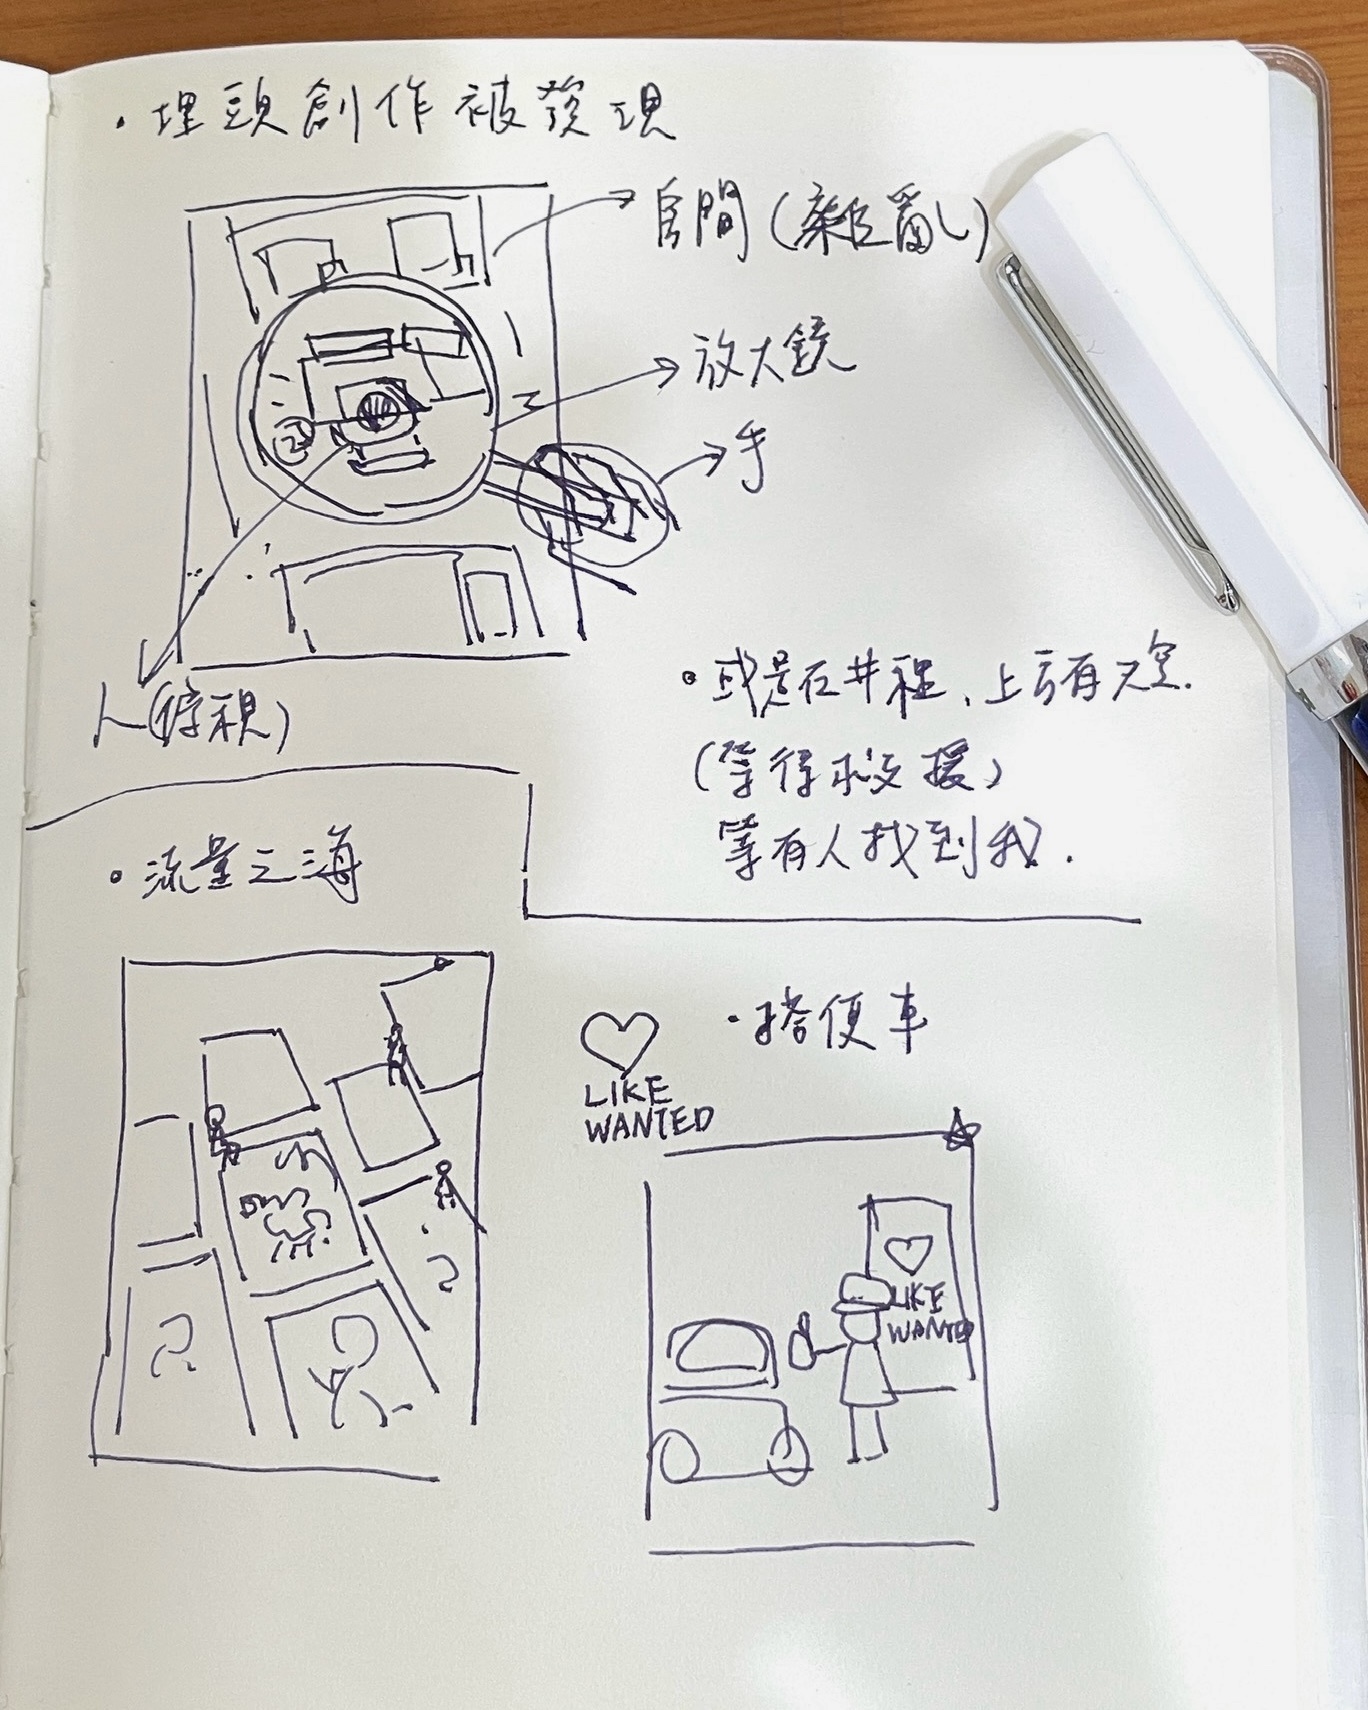 ・埋頭創作被發現
房間(雜亂)
放大鏡
手
人(俯視)
。或是在井裡、上面有天空.
(等待救援)
等有人找到我.
。流量之海
・搭便車
LIKE
WANTED
LIKE
WANTED